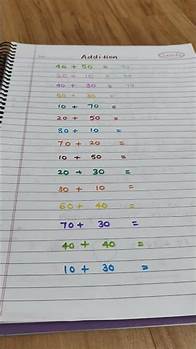 Addition
40 + 50 =
20 + 10 =
40 + 30 =
50 + 30 =
10 + 70 =
20 + 50 =
80 + 10 =
70 + 20 =
10 + 50 =
20 + 30 =
30 + 10 =
60 + 40 =
70 + 30 =
40 + 40 =
10 + 30 =